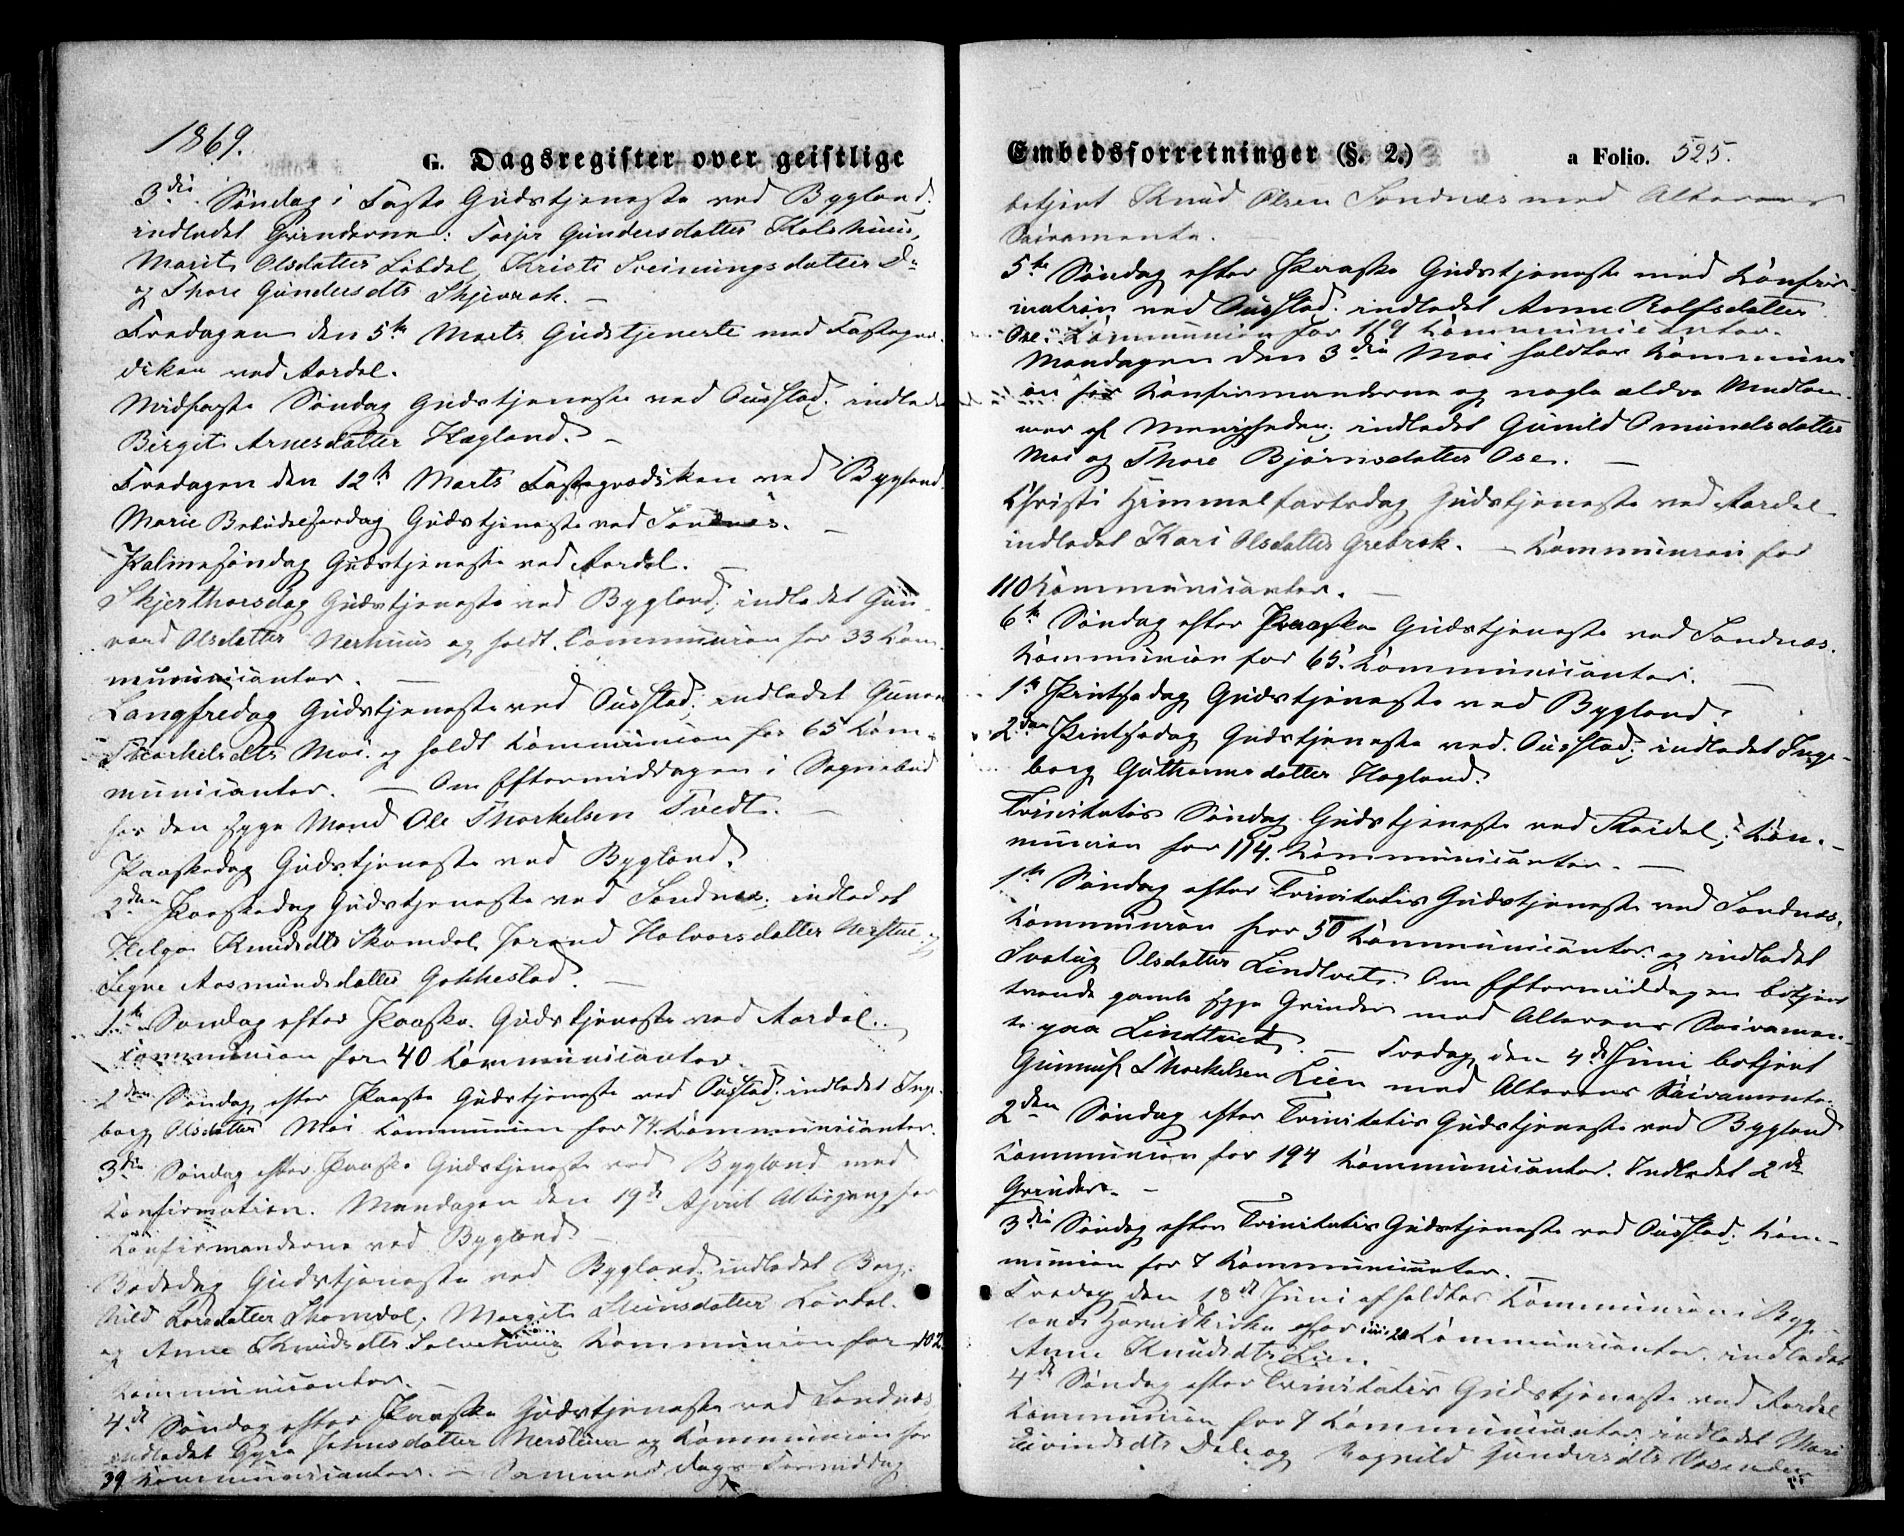 1869.
G. Dagsregister over geistlige
3die Søndag i Faste Gudstjeneste ved Bygland;
indledet Qvinderne: Torjer Gundersdatter Kolshuus,
Marit Olsdatter Løbdal, Kristi Sveinungsdatter D:
og Thore Gundersdtr Skjevrak. –
Fredagen den 5te Marts Gudstjeneste med Fastepræ-
diken ved Aardal.
Midfaste Søndag Gudstjeneste ved Ousstad; indledet
Birgit Arnesdatter Hægland. –
Fredagen den 12te Marts Fasteprædiken ved Bygland.
Marie Bebudelsesdag Gudstjeneste ved Sandnæs. –
Palmesøndag Gudstjeneste ved Aardal. –
Skjerthorsdag Gudstjeneste ved Bygland; indledet Gun-
vord Olsdatter Nerhuus og holdt Communion for 33 Kom-
municanter. –
Langfredag Gudstjeneste ved Ousstad; indledet Gunvor
Thorkelsdtr Moi og holdt Kommunion for 65 Kom-
municanter. – Om Eftermiddagen i Sognebud
hos den syge Mand Ole Thorkelsen Tvedt. –
Paaskedag Gudstjeneste ved Bygland.
2den Paaskedag Gudstjeneste ved Sandnæs; indledet
Helga Knudsdtr Skomdal, Jorand Halvorsdatter Nerstue og
Signe Aasmundsdatter Gakkestad. –
1ste Søndag efter Paaske Gudstjeneste ved Aardal.
Communion for 40 Kommunicanter.
2den Søndag efter Paaske Gudstjeneste ved Ousstad; indledet Inge-
borg Olsdatter Moi Kommunion for 74 Kommunicanter.
3die Søndag efter Paaske Gudstjeneste ved Bygland med
Konfirmation. Mandagen den 19de April Altergang for
Konfirmanderne ved Bygland –
Bededag Gudstjeneste ved Bygland; indledet Borg-
hild Larsdatter Skomdal, Margit Steinsdatter Løvdal
og Anne Knudsdtr Kommunion for 102
Kommunicanter. –
4de Søndag efter Paaske Gudstjeneste ved Sandnæs
indledet Gyro Johnsdatter Nersteen og Kommunion for
39 Kommunicanter. – Sammes Dags Formiddag
Embedsforretninger (§. 2.)
a Folio. 525.
betjent Knud Olsen Sandnæs med Alterens
Sacramente. –
5te Søndag efter Paaske Gudstjeneste med Konfir-
mation ved Ousstad; indledet Anne Rolfsdatter
Ose; Kommunion for 119 Kommunicanter.
Mandagen den 3die Mai holdtes Kommuni-
on for Konfirmanderne og nogle ældre Medlem-
mer af Menigheden; indledet Gunild Omundsdatter
Moi og Thore Bjørnsdatter Ose. –
Christi Himmelfartsdag Gudstjeneste ved Aardal
indledet Kari Olsdatter Grebrok. – Kommunion for
110 Kommunicanter. –
6te Søndag efter Paaske Gudstjeneste ved Sandnæs.
Kommunion for 65 Kommunicanter. –
1ste Pintsedag Gudstjeneste ved Bygland.
2den Pintsedag Gudstjeneste ved Ousstad; indledet Inge-
borg Guthormsdatter Hægland.
Trinitatis Søndag Gudstjeneste ved Aardal; Kom-
munion for 114 Kommunicanter. –
1ste Søndag efter Trinitatis Gudstjeneste ved Sandnæs,
Kommunion for 50 Kommunicanter og indledet
Svalug Olsdatter Lindtvet. Om Eftermiddagen betjent
trende gamle syge Qvinder med Alterens Sacramen-
te paa Lindtvet. – Fredag den 4de Juni betjent
Gunnuf Thorkelsen Lien med Alterens Sacramente.
2den Søndag efter Trinitatis Gudstjeneste ved Bygland
Kommunion for 194 Kommunicanter. Indledet 2de
Qvinder. –
3die Søndag efter Trinitatis Gudstjeneste ved Ousstad. Kom-
munion for 7 Kommunicanter. –
Fredag den 18de Juni afholdtes Kommunion i Byg-
lands Hovedkirke for 20 Kommunicanter, indledet
Anne Knudsdtr Lien
4de Søndag efter Trinitatis Gudstjeneste ved Aardal
Kommunion for 7 Kommunicanter, indledet Mari
Eivindsdtr Dale og Ragnild Gundersdtr Vasenden